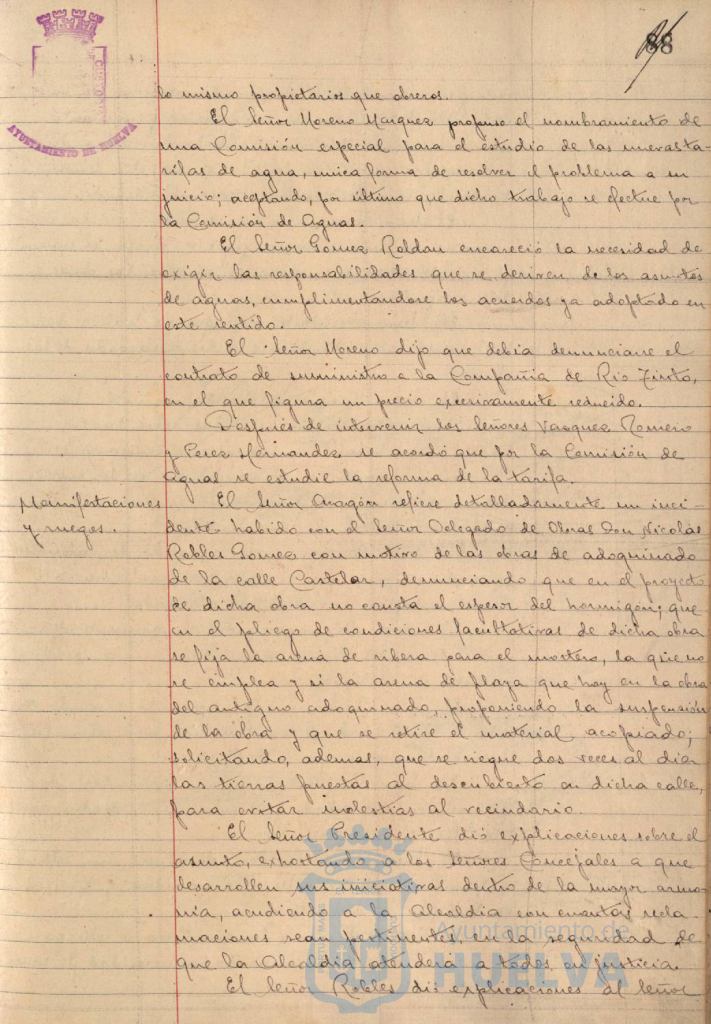 88
AYUNTAMIENTO DE HUELVA
lo mismo propietarios que obreros.
El Señor Moreno Marquez propuso el nombramiento de
una Comisión especial para el estudio de las nuevas ta-
rifas de agua, unica forma de resolver el problema a su
juicio; aceptando, por último que dicho trabajo se efectue por
la Comisión de Aguas.
El Señor Gomez Roldan encareció la necesidad de
exigir las responsabilidades que se deriven de los asuntos
de aguas, cumplimentandose los acuerdos ya adoptado en
este sentido.
El Señor Moreno dijo que debia denunciarse el
contrato de suministro a la Compañia de Rio Tinto,
en el que figura un precio excesivamente reducido.
Después de intervenir los Señores Vazquez Romero
y Perez Hernandez se acordó que por la Comisión de
aguas se estudie la reforma de la tarifa.
Manifestaciones
y ruegos.
El Señor Aragón refiere detalladamente un inci-
dente habido con el Señor Delegado de Obras Don Nicolás
Robles Gomez con motivo de las obras de adoquinado
de la calle Castelar, denunciando que en el proyecto
de dicha obra no consta el espesor del hormigón; que
en el pliego de condiciones facultativas de dicha obra
se fija la arena de ribera para el mortero, la que no
se emplea y si la arena de playa que hay en la obra
del antiguo adoquinado, proponiendo la suspensión
de la obra y que se retire el material acopiado;
solicitando, ademas, que se riegue dos veces al dia
las tierras puestas al descubierto en dicha calle,
para evitar molestias al vecindario.
El Señor Presidente dió explicaciones sobre el
asunto, exhortando a los Señores Concejales a que
desarrollen sus iniciativas dentro de la mayor armo-
nia, acudiendo a la Alcaldia con cuantas recla-
maciones sean pertinentes, en la seguridad de
que la Alcaldia atendera a todos en justicia.
El Señor Robles dió explicaciones al Señor
Ayuntamiento de
HUELVA